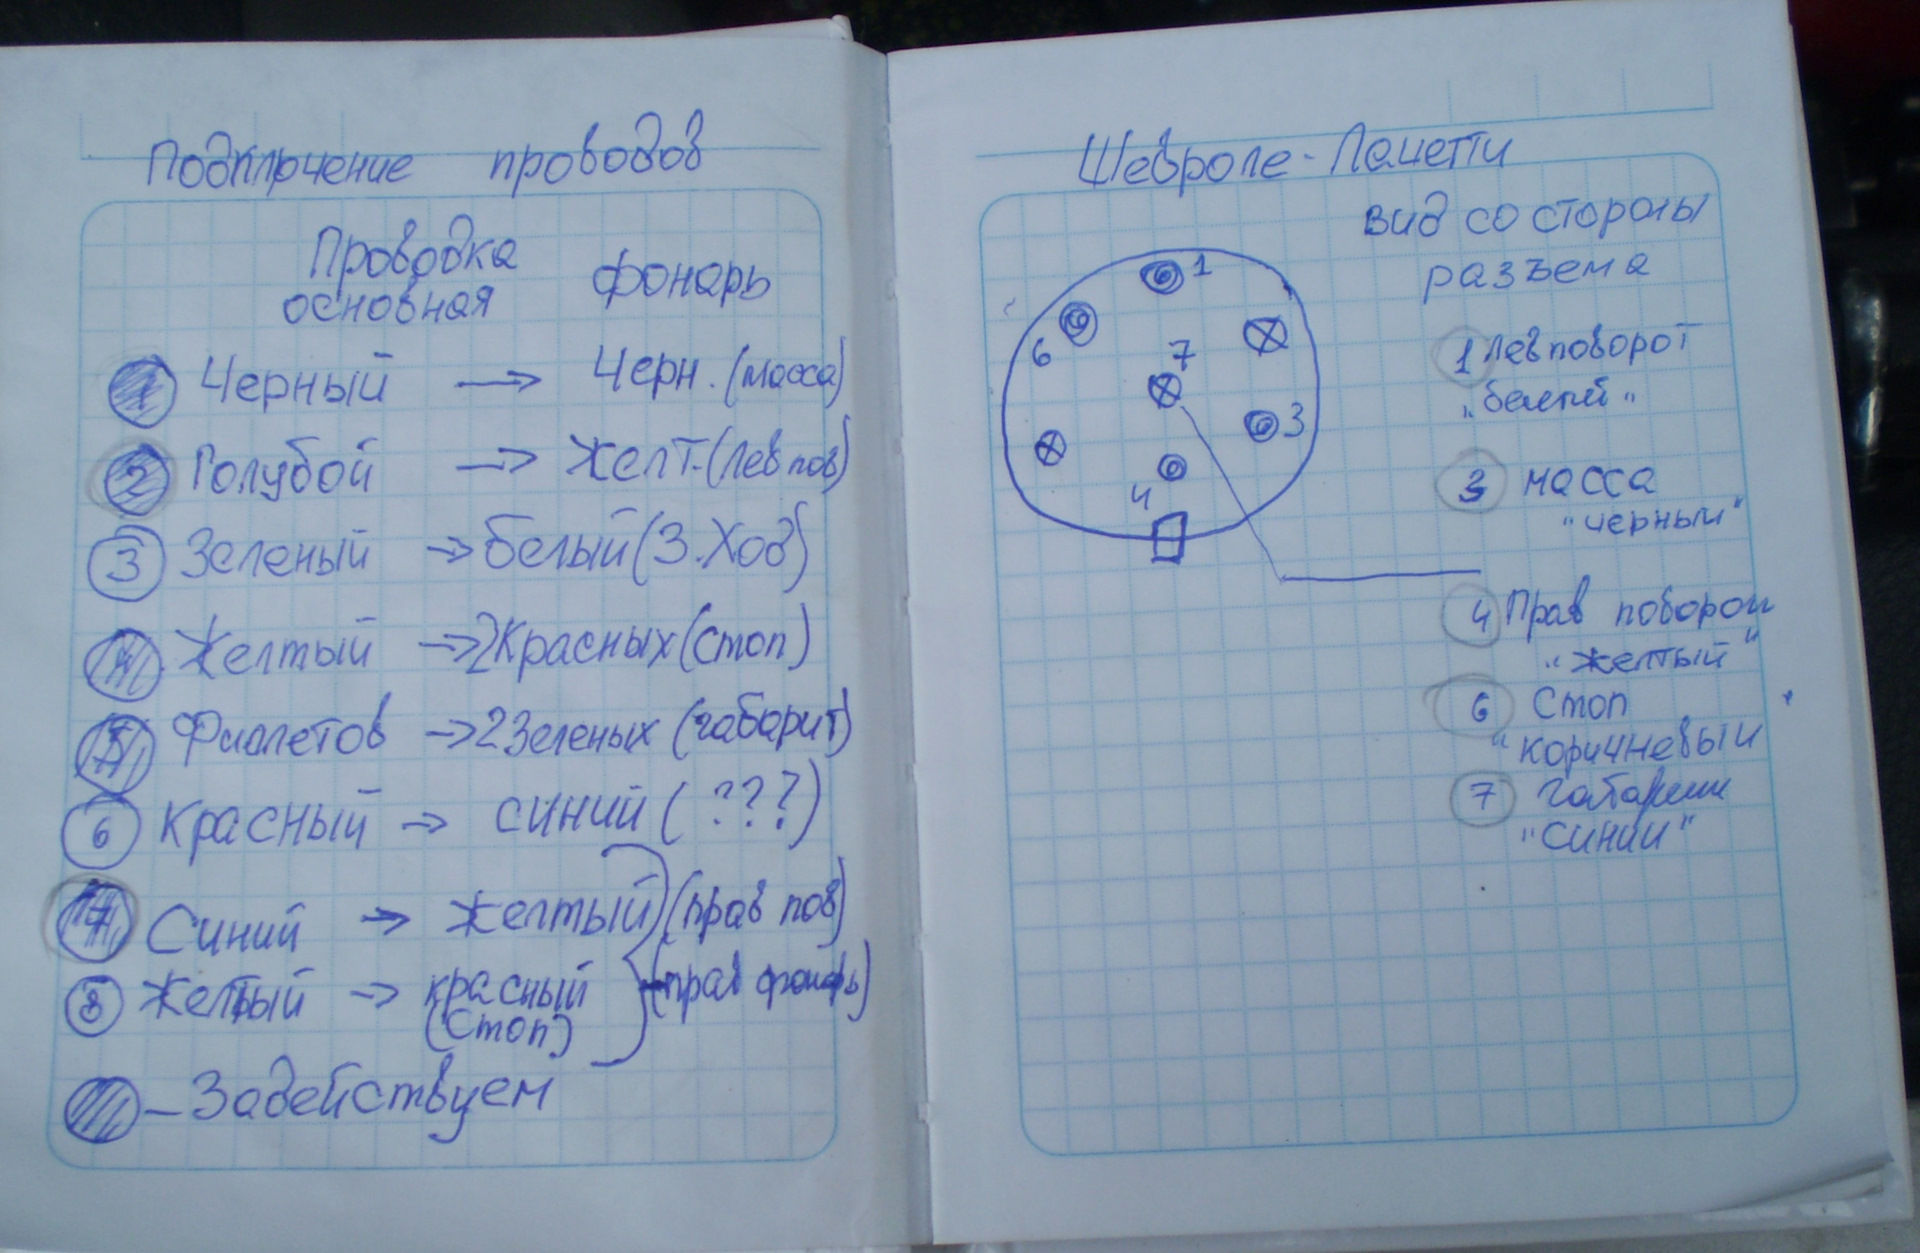 Подключение проводов
Проводка основная
фонарь
1 Черный → Черн. (масса)
2 Голубой → Желт. (лев пов)
3 Зеленый → белый (З. Ход)
4 Желтый → 2 Красных (стоп)
5 Фиолетов → 2 Зеленых (габарит)
6 Красный → синий (???)
7 Синий → Желтый (прав пов)
8 Желтый → красный (прав фонарь)
(Стоп)
— Задействуем
Шевроле - Лачетти
вид со стороны
разъема
1
6
7
3
4
1 Лев поворот
"белый"
3 масса
"черный"
4 Прав поворот
"желтый"
6 Стоп
"коричневый
7 габариты
"синий"